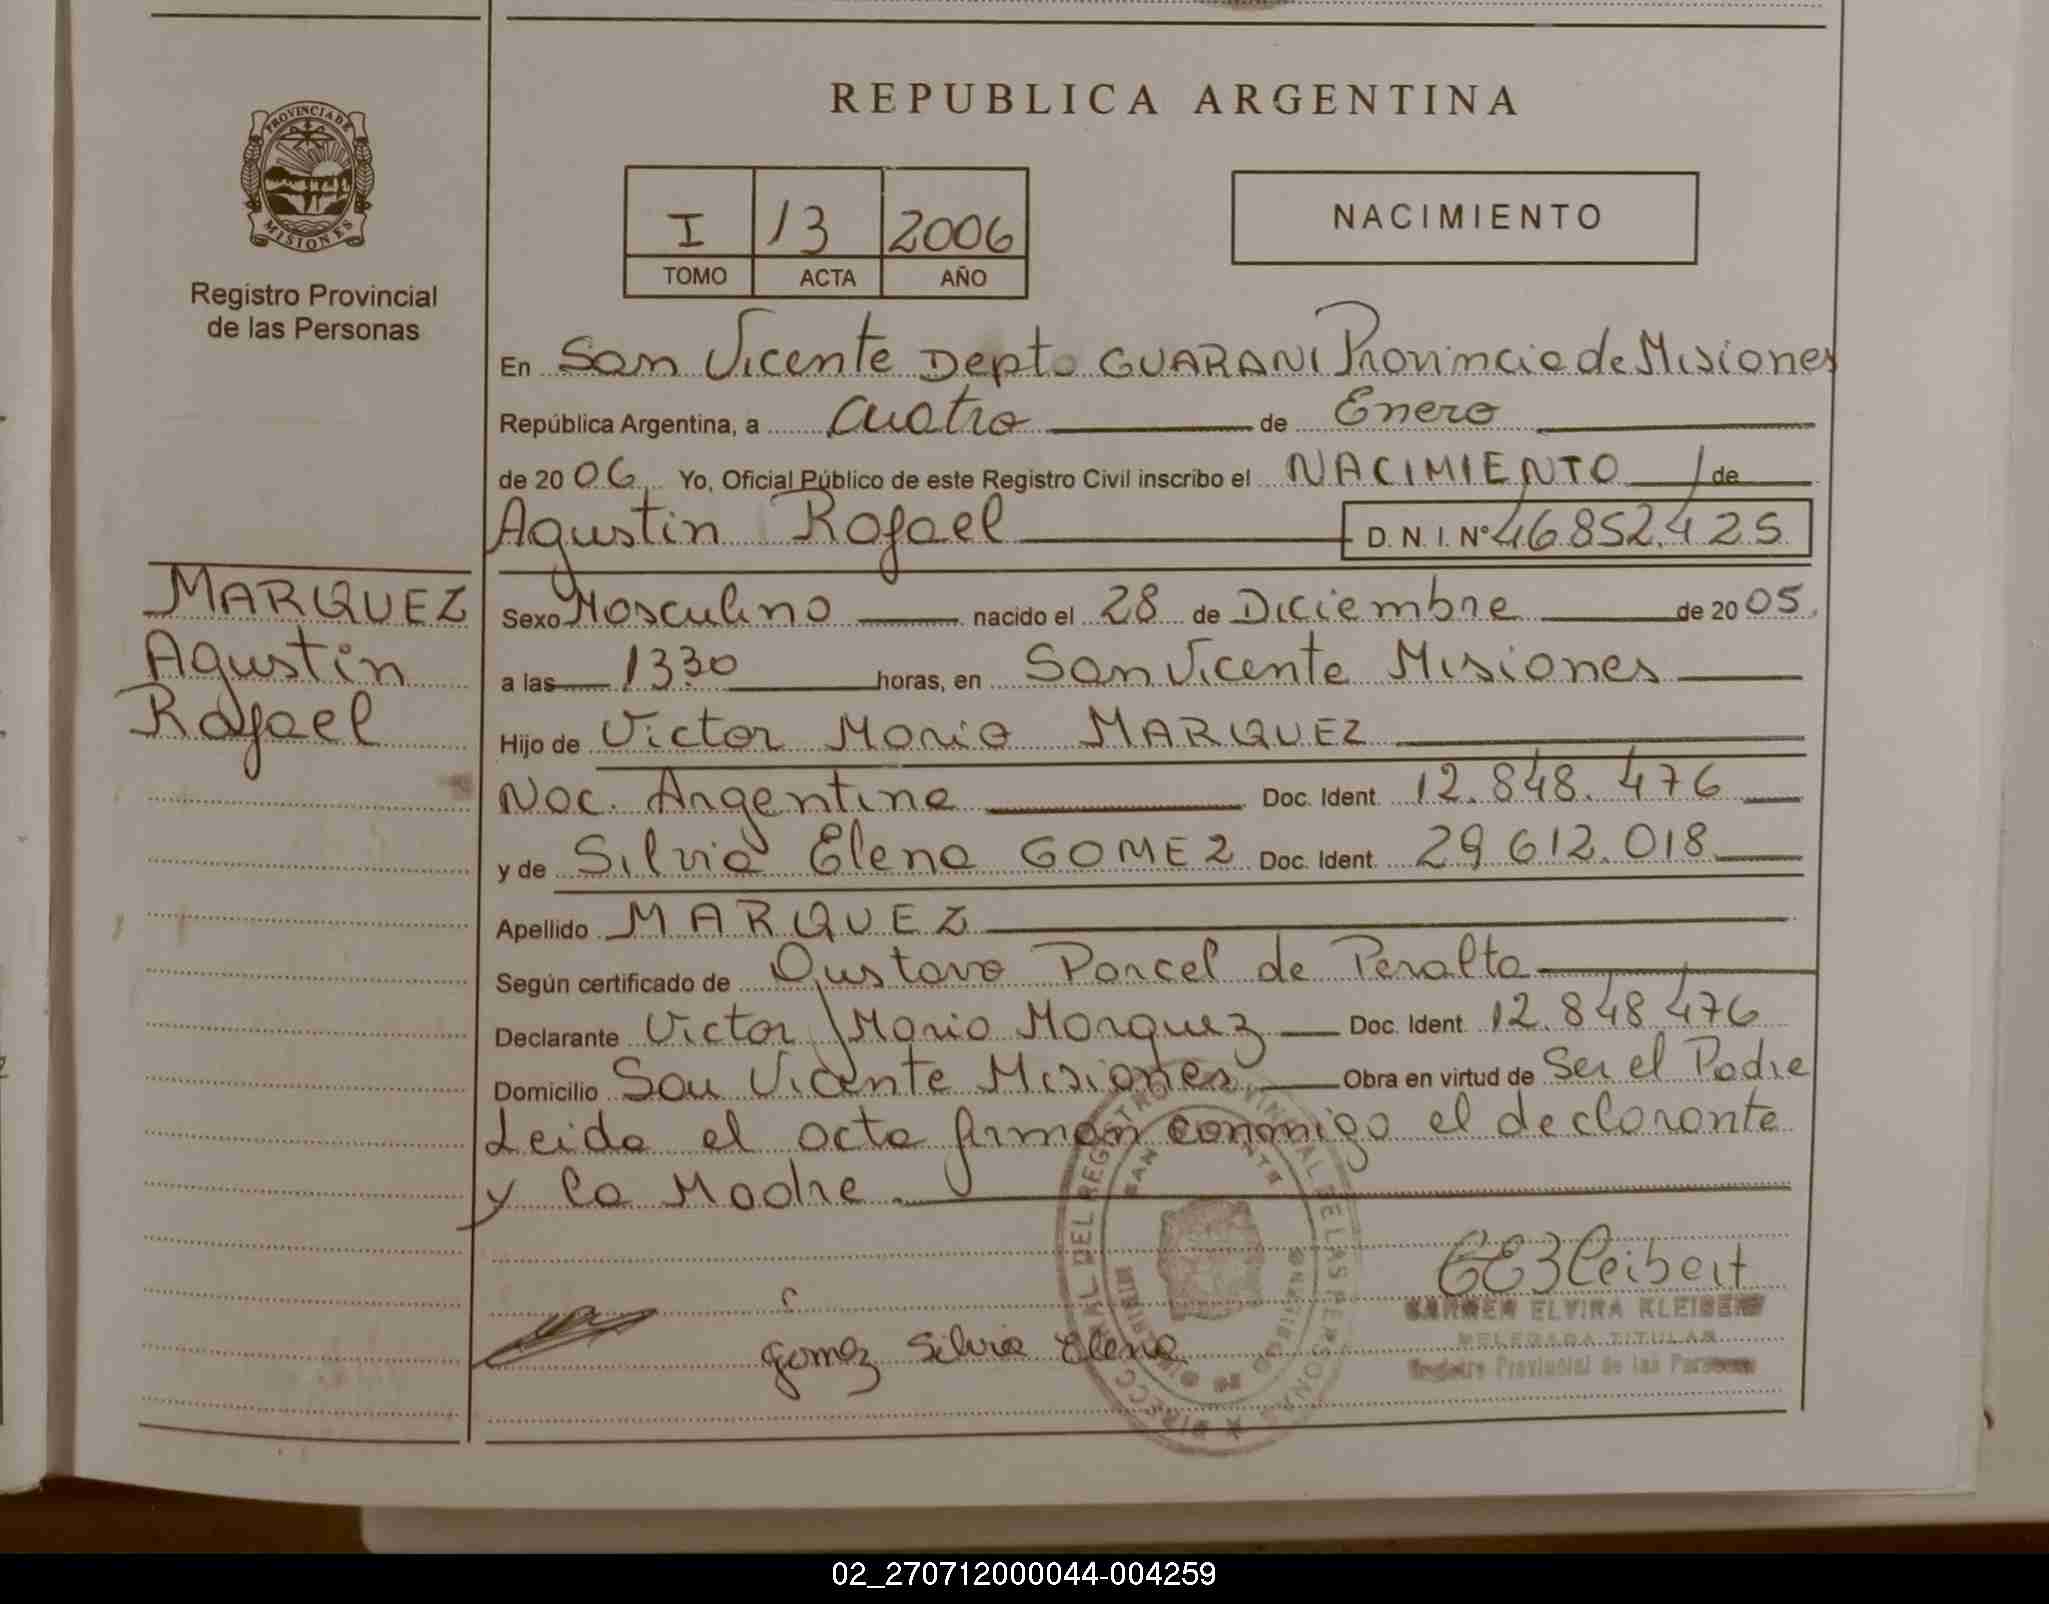 REPUBLICA ARGENTINA
PROVINCIA DE
MISIONES
Registro Provincial
de las Personas
I 13 2006
TOMO ACTA AÑO
NACIMIENTO
En San Vicente Depto GUARANI Provincia de Misiones
República Argentina, a Cuatro de Enero
de 2006 Yo, Oficial Público de este Registro Civil inscribo el NACIMIENTO de
Agustin Rafael D. N. I. Nº 46.852.425
MARQUEZ
Agustin
Rafael
Sexo Masculino nacido el 28 de Diciembre de 2005.
a las 1330 horas, en San Vicente Misiones
Hijo de Victor Mario MARQUEZ
Nac. Argentina Doc. Ident. 12.848.476
y de Silvia Elena GOMEZ Doc. Ident. 29.612.018
Apellido MARQUEZ
Según certificado de Gustavo Porcel de Peralta
Declarante Victor Mario Marquez Doc. Ident. 12.848.476
Domicilio San Vicente Misiones Obra en virtud de Ser el Padre
Leida el acta firman conmigo el declarante
y la Madre.
Gomez Silvia Elena
CARMEN ELVIRA KLEIBERT
DELEGADA TITULAR
Registro Provincial de las Personas
02_270712000044-004259